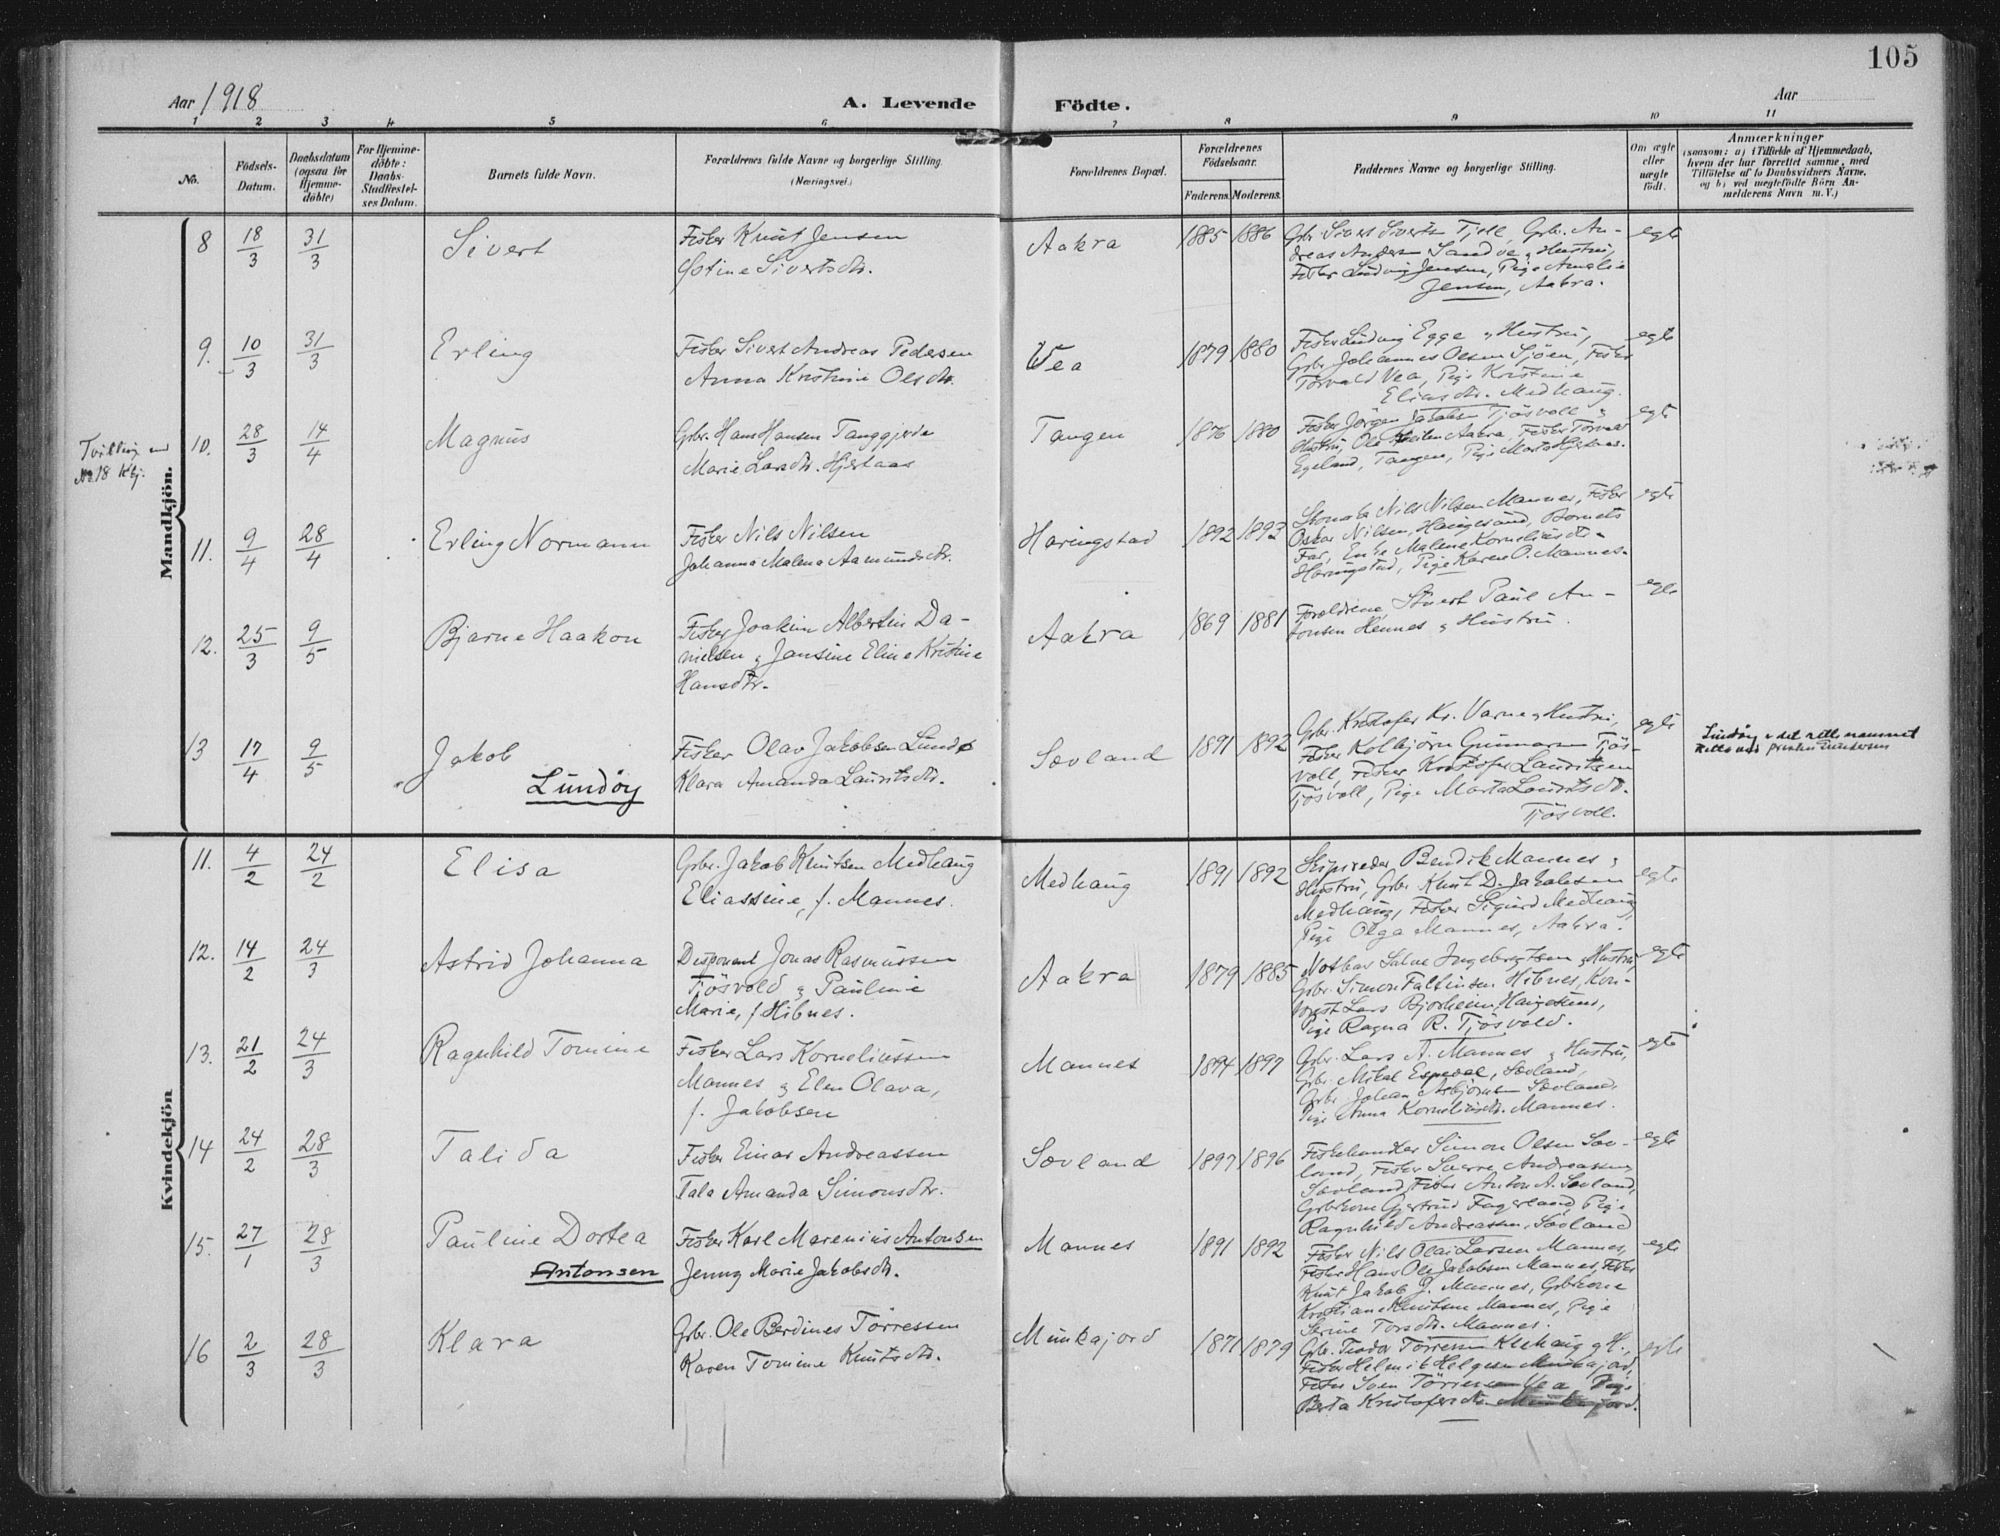 105
Aar 1918
A. Levende
Födte.
Aar
1 2 3 4 5 6 7 8 9 10 11
No.
Födsels-
Datum.
Daabsdatum
(ogsaa for
Hjemme-
döbte)
For Hjemme-
döbte:
Daabs-
Stadfæstel-
ses Datum.
Barnets fulde Navn.
Forældrenes fulde Navne og borgerlige Stilling.
(Næringsvei.)
Forældrenes Bopæl.
Forældrenes
Födselsaar.
Faderens. Moderens.
Faddernes Navne og borgerlige Stilling.
Om ægte
eller
uægte
födt.
Anmærkninger
(saasom: a) i Tilfælde af Hjemmedaab,
hvem der har forrettet samme, med
Tilföielse af to Daabsvidners Navne.
og b) ved uægtefödte Börn An-
melderens Navn m. V.)
Mandkjön.
8 18/3 31/3 Sivert
Fisker Knut Jensen
Østine Sivertsdtr.
Aakra 1885 1886
Gbr. Sivert Sivertsen Tjell, Gbr. An-
dreas Andersen Sandve & Hustru,
Fisker Ludvig Jensen, Pige Amalie
Jensen, Aakra.
egte
9. 10/3 31/3 Erling
Fisker Sivert Andreas Pedersen
Anna Kristine Olsdtr.
Vea 1879 1880
Fisker Ludvig Egge & Hustru,
Gbr. Johannes Olsen Sjöen, Fisker
Torvald Vea, Pige Kristine
Eliasdtr. Medhaug.
egte
Tvilling
No. 18 Kkj.
10. 28/3 14/4 Magnus
Gbr. Hans Hansen Tanggjerde
Marie Larsdtr. Hjertaas
Tangen 1876 1880
Fisker Jörgen Jakobsen Tjösvoll &
Hustru, Ole Aakra, Fisker Torvald
Egeland, Tangen, Pige Marta Hjertaas.
egte
11. 9/4 28/4 Erling Normann
Fisker Nils Nilsen
Johanna Malena Aamundsdtr.
Haringstad 1892 1893
Nils Nilsen Mannes, Fisker
Oskar Nilsen, Haugesund, Barnets
Far, Enke Malene Korneliusdtr.
Haringstad, Pige Karen O. Mannes.
egte
12. 25/3 9/5 Bjarne Haakon
Fisker Joakim Albertin Da-
nielsen & Jansine Eline Kristine
Hansdtr.
Aakra 1869 1881
Forældrene, Stuert Paul An-
tonsen Hemnes & Hustru.
egte
13 17/4 9/5 Jakob
Lundöy
Fisker Olav Jakobsen Lundø
Klara Amanda Lauritsdtr.
Sævland 1891 1892
Gbr. Kristofer Kr. Varne & Hustru,
Fisker Kolbjörn Gunnarsen Tjös-
voll, Fisker Kristofer Lauritsen
Tjösvoll, Pige Marta Lauritsdtr.
Tjösvoll.
egte
Lundöy e det rette navnet
Kvindekjön
11. 4/2 24/2 Elisa
Gbr. Jakob Knutsen Medhaug
Eliassine, f. Mannes.
Medhaug 1891 1892
Skipsreder Bendik Mannes &
Hustru, Gbr. Knut D. Jakobsen
Medhaug, Fisker Sigurd Medhaug,
Pige Olga Mannes, Aakra.
egte
12. 14/2 24/3 Astrid Johanna
Disponent Jonas Rasmussen
Tjösvold & Pauline
Marie, f Hibnes.
Aakra 1879 1885
Notbas Salve Ingebregtsen & Hustru,
Gbr. Simon Faltinsen Hibnes, Kon-
torist Lars Bjorheim, Haugesund,
Pige Ragna R. Tjösvold.
egte
13. 21/2 24/3 Ragnhild Tomine
Fisker Lars Korneliussen
Mannes & Elen Olava,
f. Jakobsen
Mannes 1894 1897
Gbr. Lars A. Mannes & Hustru,
Gbr. Mikal Espedal, Sævland,
Gbr. Johan Asbjörnsen Sævland,
Pige Anna Korneliusdtr. Mannes.
egte
14 24/2 28/3 Talida
Fisker Einar Andreassen
Tala Amanda Simonsdtr.
Sævland 1897 1896
Fiskehandler Simon Olsen Sæv-
land, Fisker Sverre Andreassen
Sævland, Fisker Anton A. Sævland,
Gbrkone Gjertrud Fagerland, Pige
Ragnhild Andreassen, Sævland
egte
15. 27/1 28/3 Pauline Dortea
Antonsen
Fisker Karl Marenius Antonsen
Jenny Marie Jakobsdtr.
Mannes 1891 1892
Fisker Nils Olai Larsen Mannes,
Fisker Hans Ole Jakobsen Mannes, Fisker
Knut Jakob J. Mannes, Gbrkone
Kristiane Knutsen Mannes, Pige
Serine Torsdtr. Mannes.
egte
16 2/3 28/3 Klara
Gbr. Ole Berdines Törressen
Karen Tomine Knutsdtr.
Munkajord 1871 1879
Gbr. Teodor Törressen Klehaug & H.,
Fisker Helmik Helgesen Munkajord,
Fisker Sven Törressen Vea, Pige
Berta Kristofersdtr. Munkajord.
egte